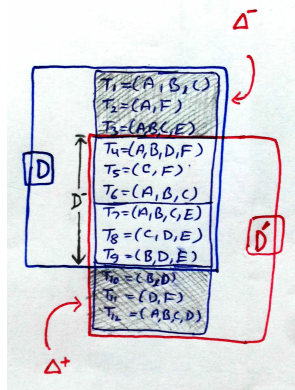 Δ⁻
T₁=(A,B,C)
T₂=(A,F)
T₃=(ABC,E)
D
T₄=(A,B,D,F)
T₅=(C,F)
D⁻
T₆=(A,B,C)
T₇=(A,B,C,E)
D′
T₈=(C,D,E)
T₉=(B,D,E)
T₁₀=(B,D)
T₁₁=(D,F)
T₁₂=(A,B,C,D)
Δ⁺